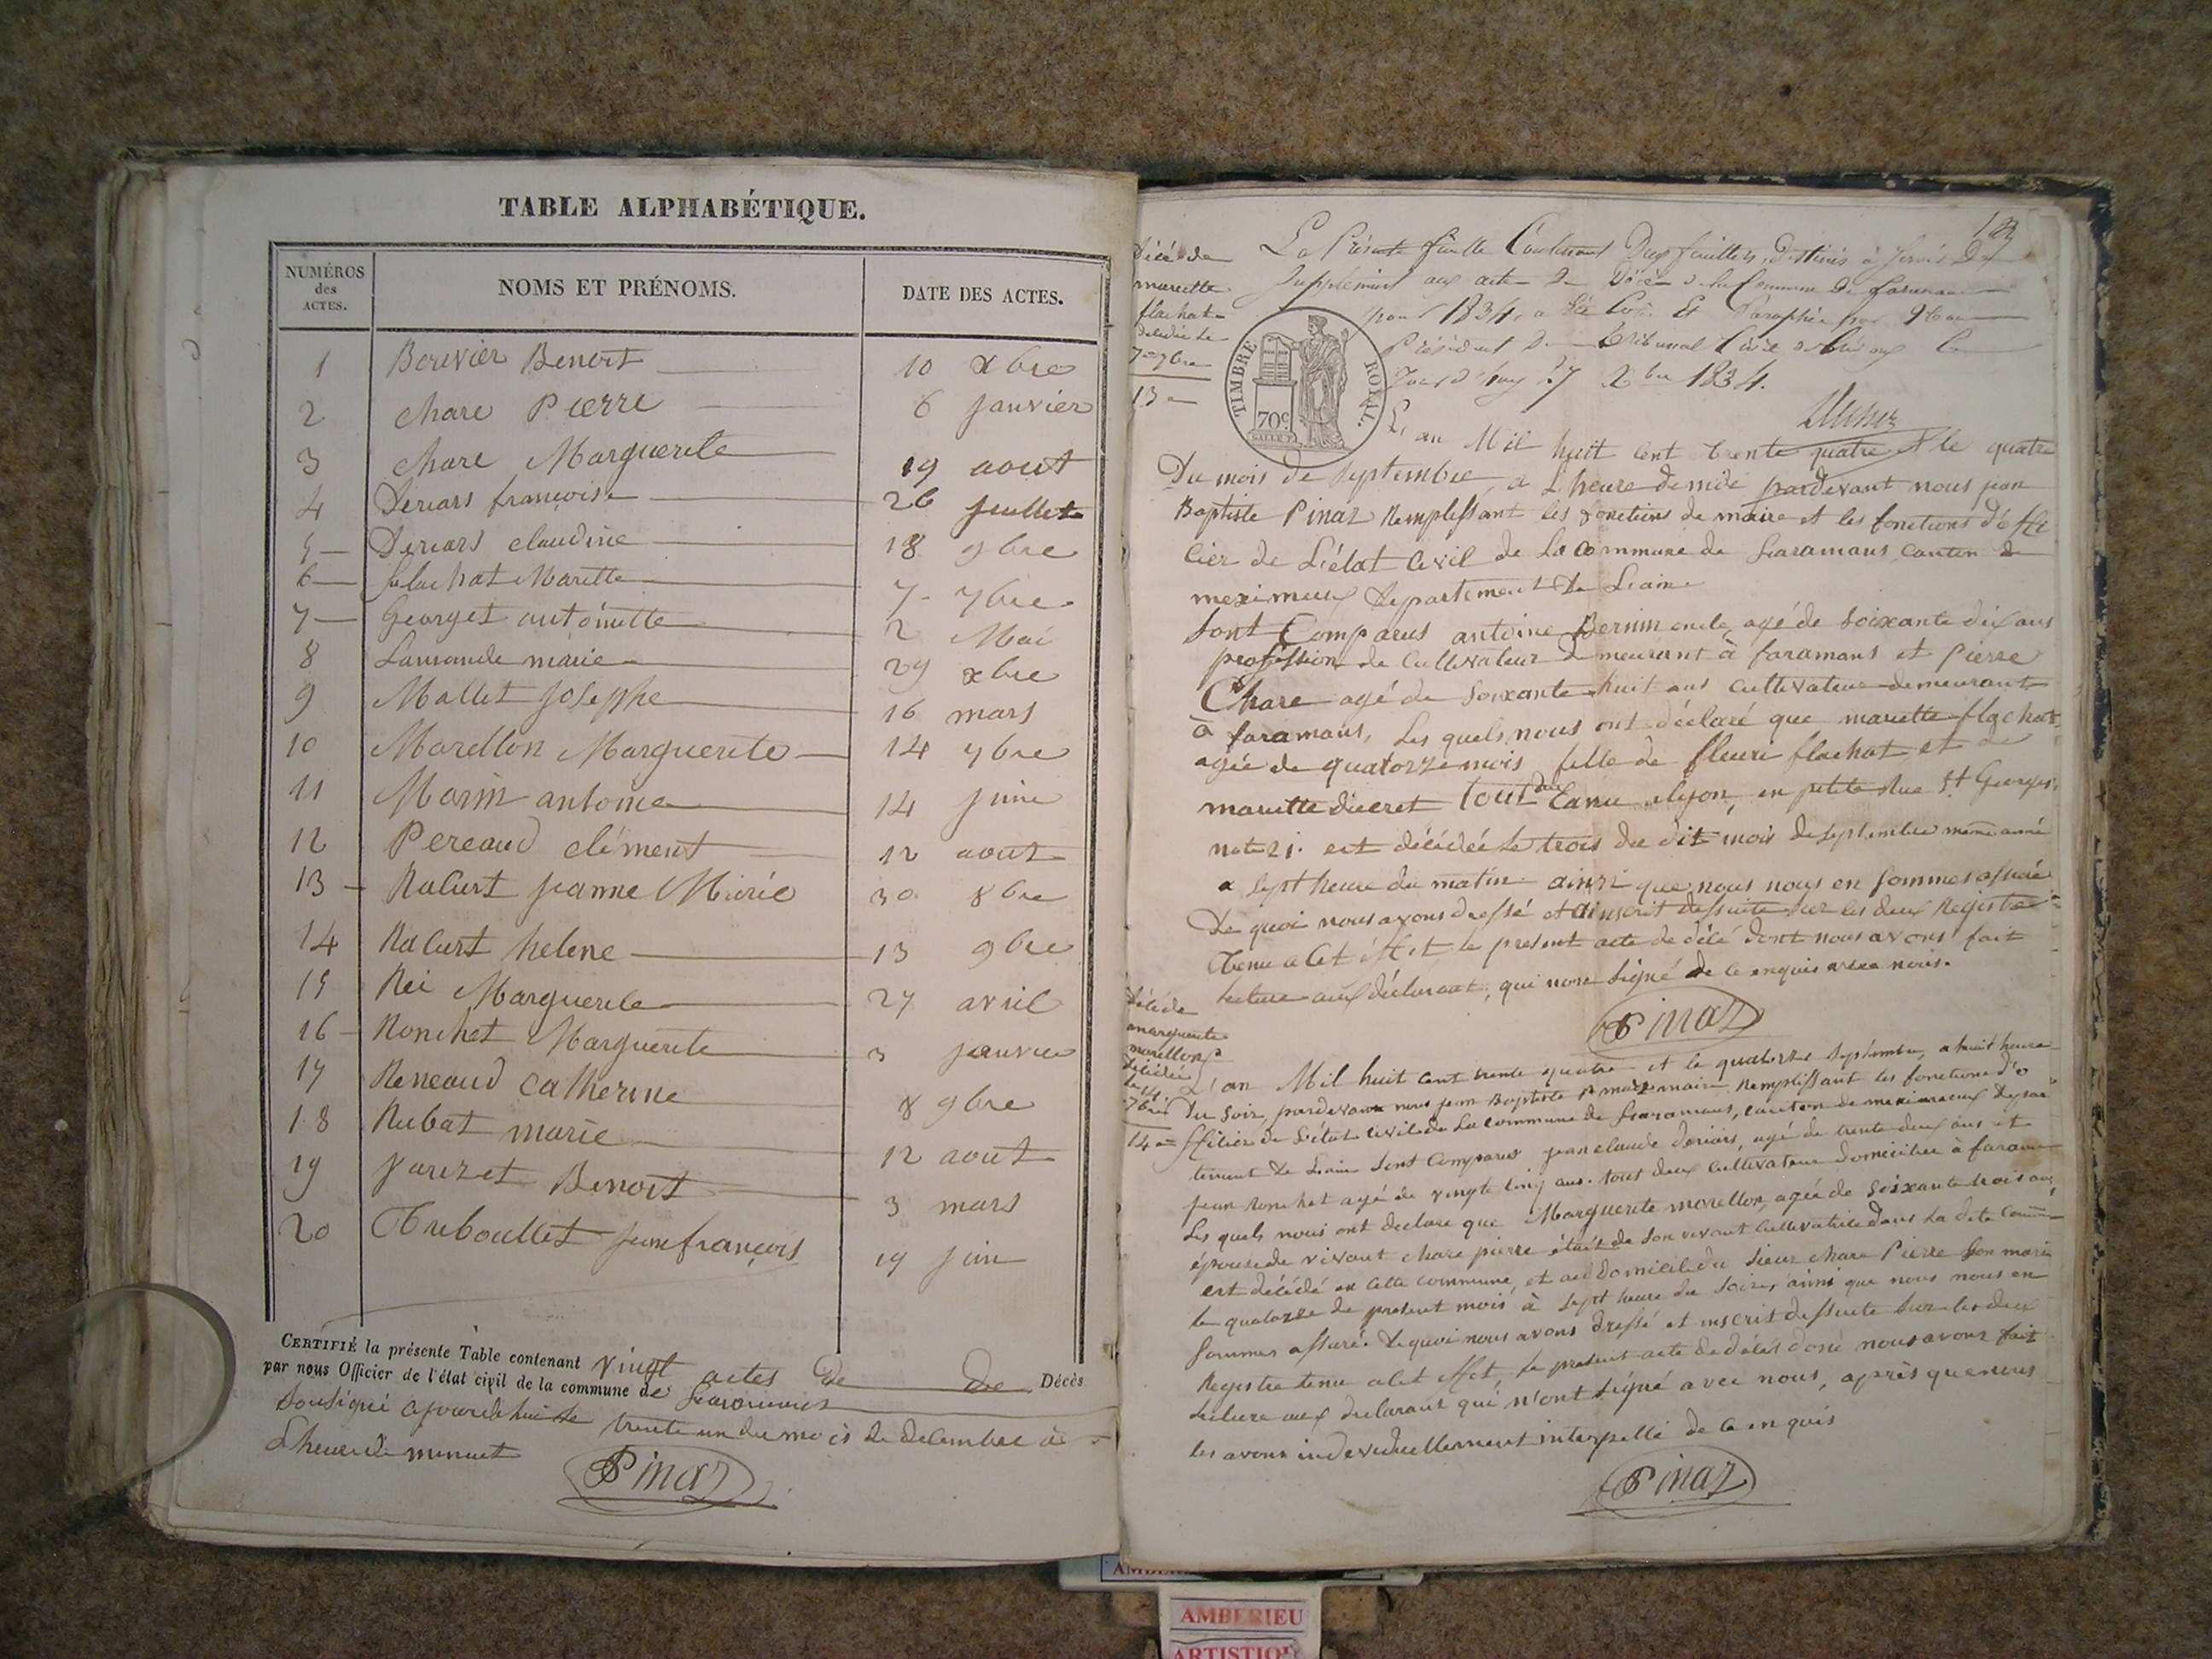 TABLE ALPHABÉTIQUE.
NUMÉROS des ACTES. NOMS ET PRÉNOMS. DATE DES ACTES.
1 Bouvier Benoit 10 xbre
2 chare Pierre 6 janvier
3 chare Marguerite 19 aout
4 Deriars françoise 26 juillet
5 Deriars claudine 18 9bre
6 flachat Marette 7 7bre
7 Georget antoinette 2 Mai
8 Lamande marie 29 xbre
9 Mallet joseph 16 mars
10 Morellon Marguerite 14 7bre
11 Morin antoine 14 juin
12 Pereaud clément 12 aout
13 Raburt jeanne Marie 30 8bre
14 Raburt helene 13 9bre
15 Rei Marguerite 27 avril
16 Ronchet Marguerite 3 janvier
17 Reneaud catherine 8 9bre
18 Rubat marie 12 aout
19 Varizet Benoit 3 mars
20 Triboullet jean françois 19 juin
CERTIFIÉ la présente Table contenant vingt actes de Décès
par nous Officier de l'état civil de la commune de faramans
Sousigné ajourdehui le trente un du mois de decembre à
L'heure de minuit
Pinaz
Décé de
mariette
flachat
décédée le
7bre
13
La Présente feuille Contenant Deux feuillets, destinés à servir De
Supplément aux acte De Décès de la Commune De faramans
pour 1834, a été Coté Et Paraphée par
Président Du tribunal Civil
Jourd'huy 27 1834.
L'an Mil huit cent trente quatre et le quatre
Du mois de septembre, a L'heure de midi pardevant nous jean
Baptiste Pinaz Remplissant les fonctions de maire et les fonctions d'offi
cier de L'état Civil de La commune de faramans, canton de
meximieux Departement De L'ain
Sont Comparus antoine oncle, agé de Soixante dix ans
profession de Cultivateur demeurant à faramans et Pierre
Chare agé de Soixante huit ans cultivateur demeurant
à faramans, Les quels nous ont déclaré que mariette flachat
agée de quatorze mois fille de fleuri flachat et de
mariette tout deux Lyon, en petite Rue St Georges,
not 21. est décédée le trois du dit mois de septembre même année
a sept heure du matin ainsi que nous nous en sommes assuré
De quoi nous avons dressé et inscrit de suite sur les deux Registre
Tenu a Cet éffet le present acte de décé dont nous avons fait
lecture aux déclarant, qui non Signé de ce enquis avec nous.
Pinaz
Décé de
marguerite
morellon
décédée
le 14
7bre
14
L'an Mil huit cent trente quatre et le quatorze septembre, a huit heure
Du soir, pardevant nous jean Baptiste Pinaz maire Remplissant les fonctions d'o
fficier de L'état civil de La commune de faramans, canton de meximieux Depar
tement De L'ain Sont Comparus jean claude deriars, agé de trente deux ans et
jean Ronchet agé de vingte cinq ans. tous deux Cultivateur domicilier à faramans
Les quels nous ont declare que Marguerite morellon, agée de soixante trois ans,
épouse de vivant chare pierre était de Son vivant Cultivatrice dans La dite Commune
est décédé en Cette commune, et au domicil du Sieur chare Pierre Son mari
le quatorze de present mois à Sept heure du Soir, ainsi que nous nous en
Sommes assuré. De quoi nous avons dressé et inscrit de suite Sur les deux
Registre tenu a Cet effet, le présent acte de décés donc nous avons fait
lecture aux declarant qui n'ont Signé avec nous, après que nous
les avons individuellement interpellé de ce enquis
Pinaz
TIMBRE ROYAL.
70c
AMBERIEU
ARTISTIQU